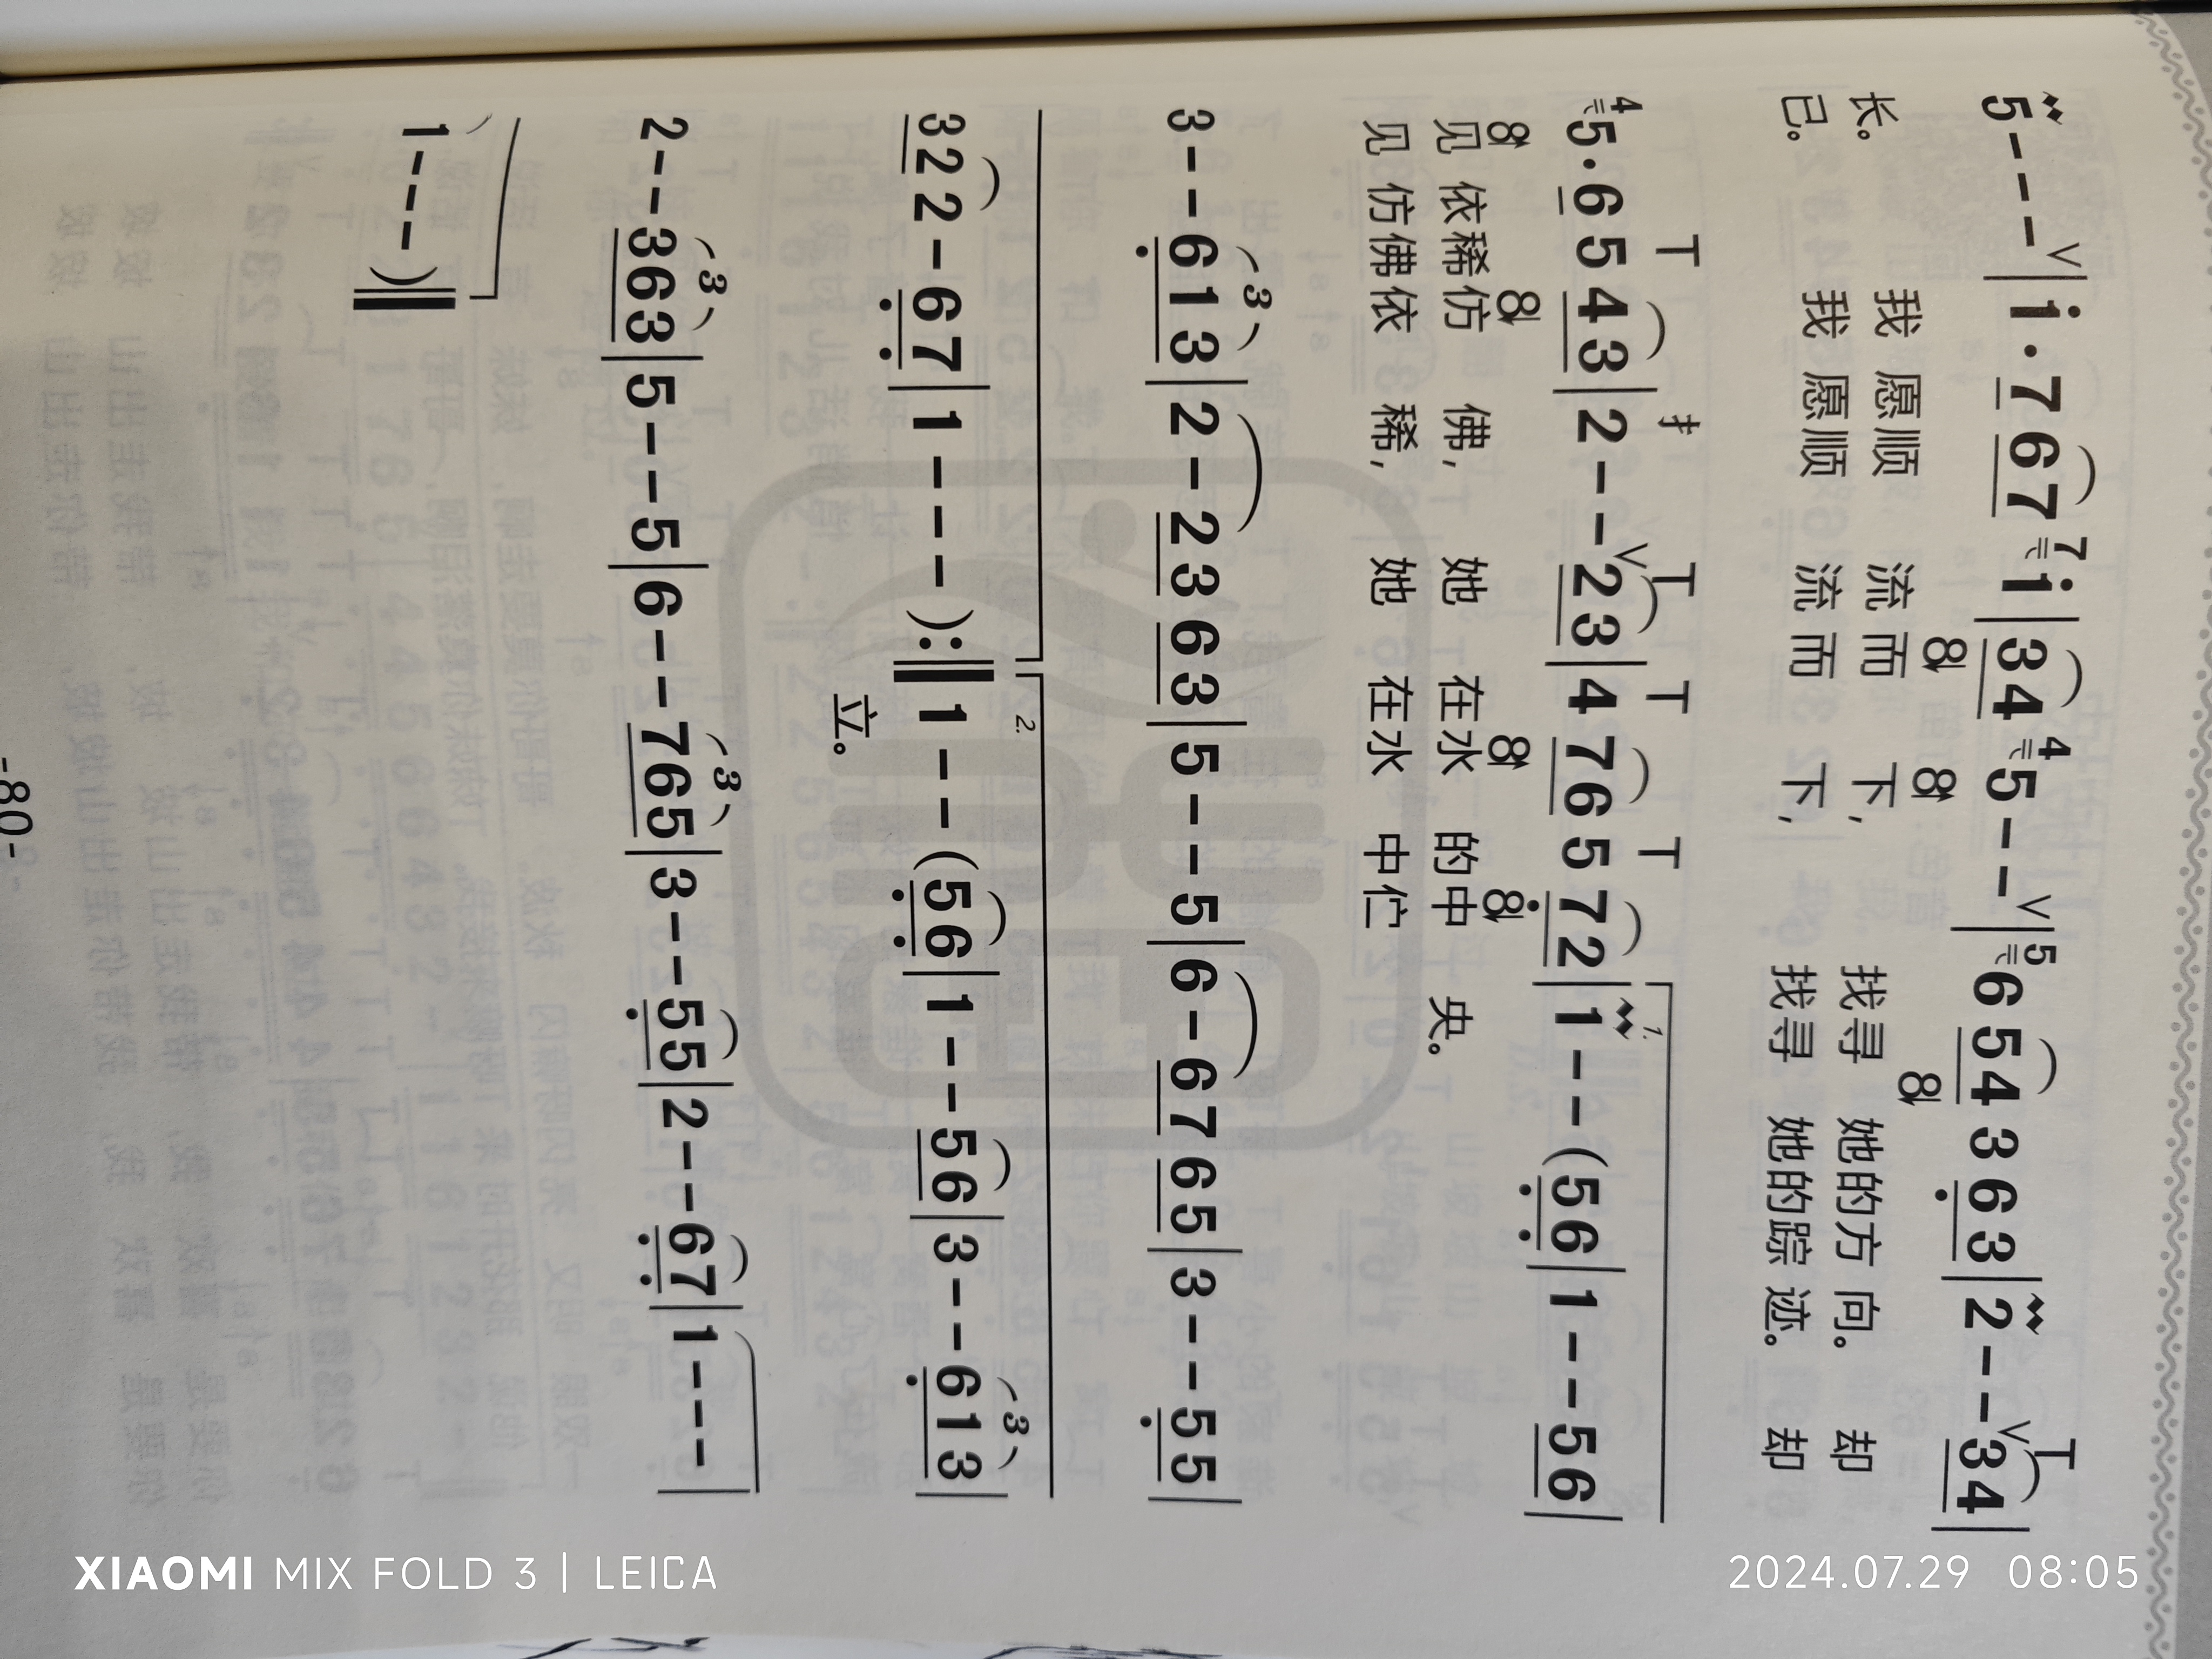 5 - - - ∨ | i · 7 6 7 ⁷i | 3 4 ⁴5 - - ∨ | ⁵6 5 4 3 6̣ 3 | 2 - - ∨ 3 4 |
长。 我 愿顺 流 而 下, 找寻 她的方 向。 却
已。 我 愿顺 流 而 下, 找寻 她的踪 迹。 却
⁴5 · 6 5 4 3 | 2 - - ∨ 2 3 | 4 7 6 5 7̣ 2 | 1 - - ( 5̣ 6̣ | 1 - - 5 6 |
见 依稀仿 佛, 她 在水 的中 央。
见 仿佛依 稀, 她 在水 中伫
3 - - 6̣ 1 3 | 2 - 2 3 6 3 | 5 - - 5 | 6 - 6 7 6 5 | 3 - - 5̣ 5 |
3 2 2 - 6̣ 7̣ | 1 - - - ) :‖ 1 - - ( 5̣ 6̣ | 1 - - 5 6 | 3 - - 6̣ 1 3 |
立。
2 - - 3 6 3 | 5 - - 5 | 6 - - 7 6 5 | 3 - - 5̣ 5 | 2 - - 6̣ 7̣ | 1 - - - |
1 - - - ) ‖
-80-
XIAOMI MIX FOLD 3 | LEICA
2024.07.29 08:05